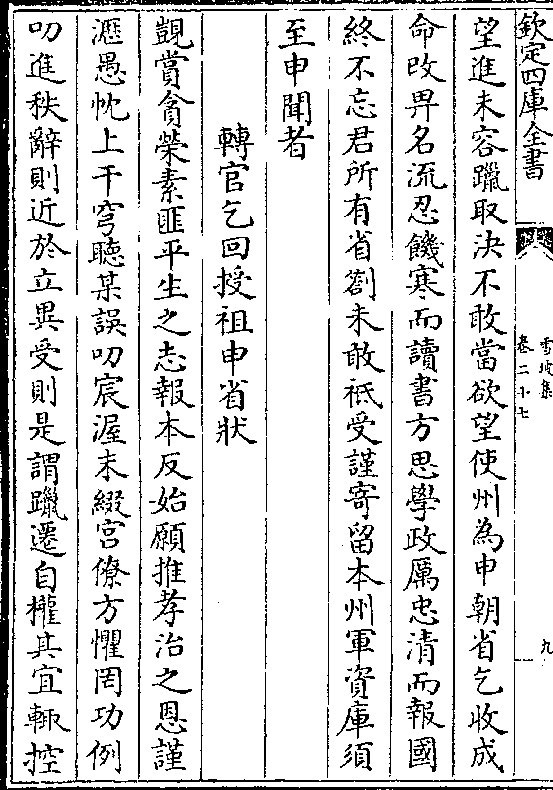 欽定四庫全書
雪坡集
卷二十七
九
望進未容躐取決不敢當欲望使州為申朝省乞收成
命改畀名流忍饑寒而讀書方思學政厲忠清而報國
終不忘君所有省劄未敢祗受謹寄留本州軍資庫須
至申聞者
轉官乞回授祖申省狀
覬賞貪榮素匪平生之志報本反始願推孝治之恩謹
瀝愚忱上干穹聽某誤叨宸渥末綴宫僚方懼罔功例
叨進秩辭則近於立異受則是謂躐遷自權其宜輒控